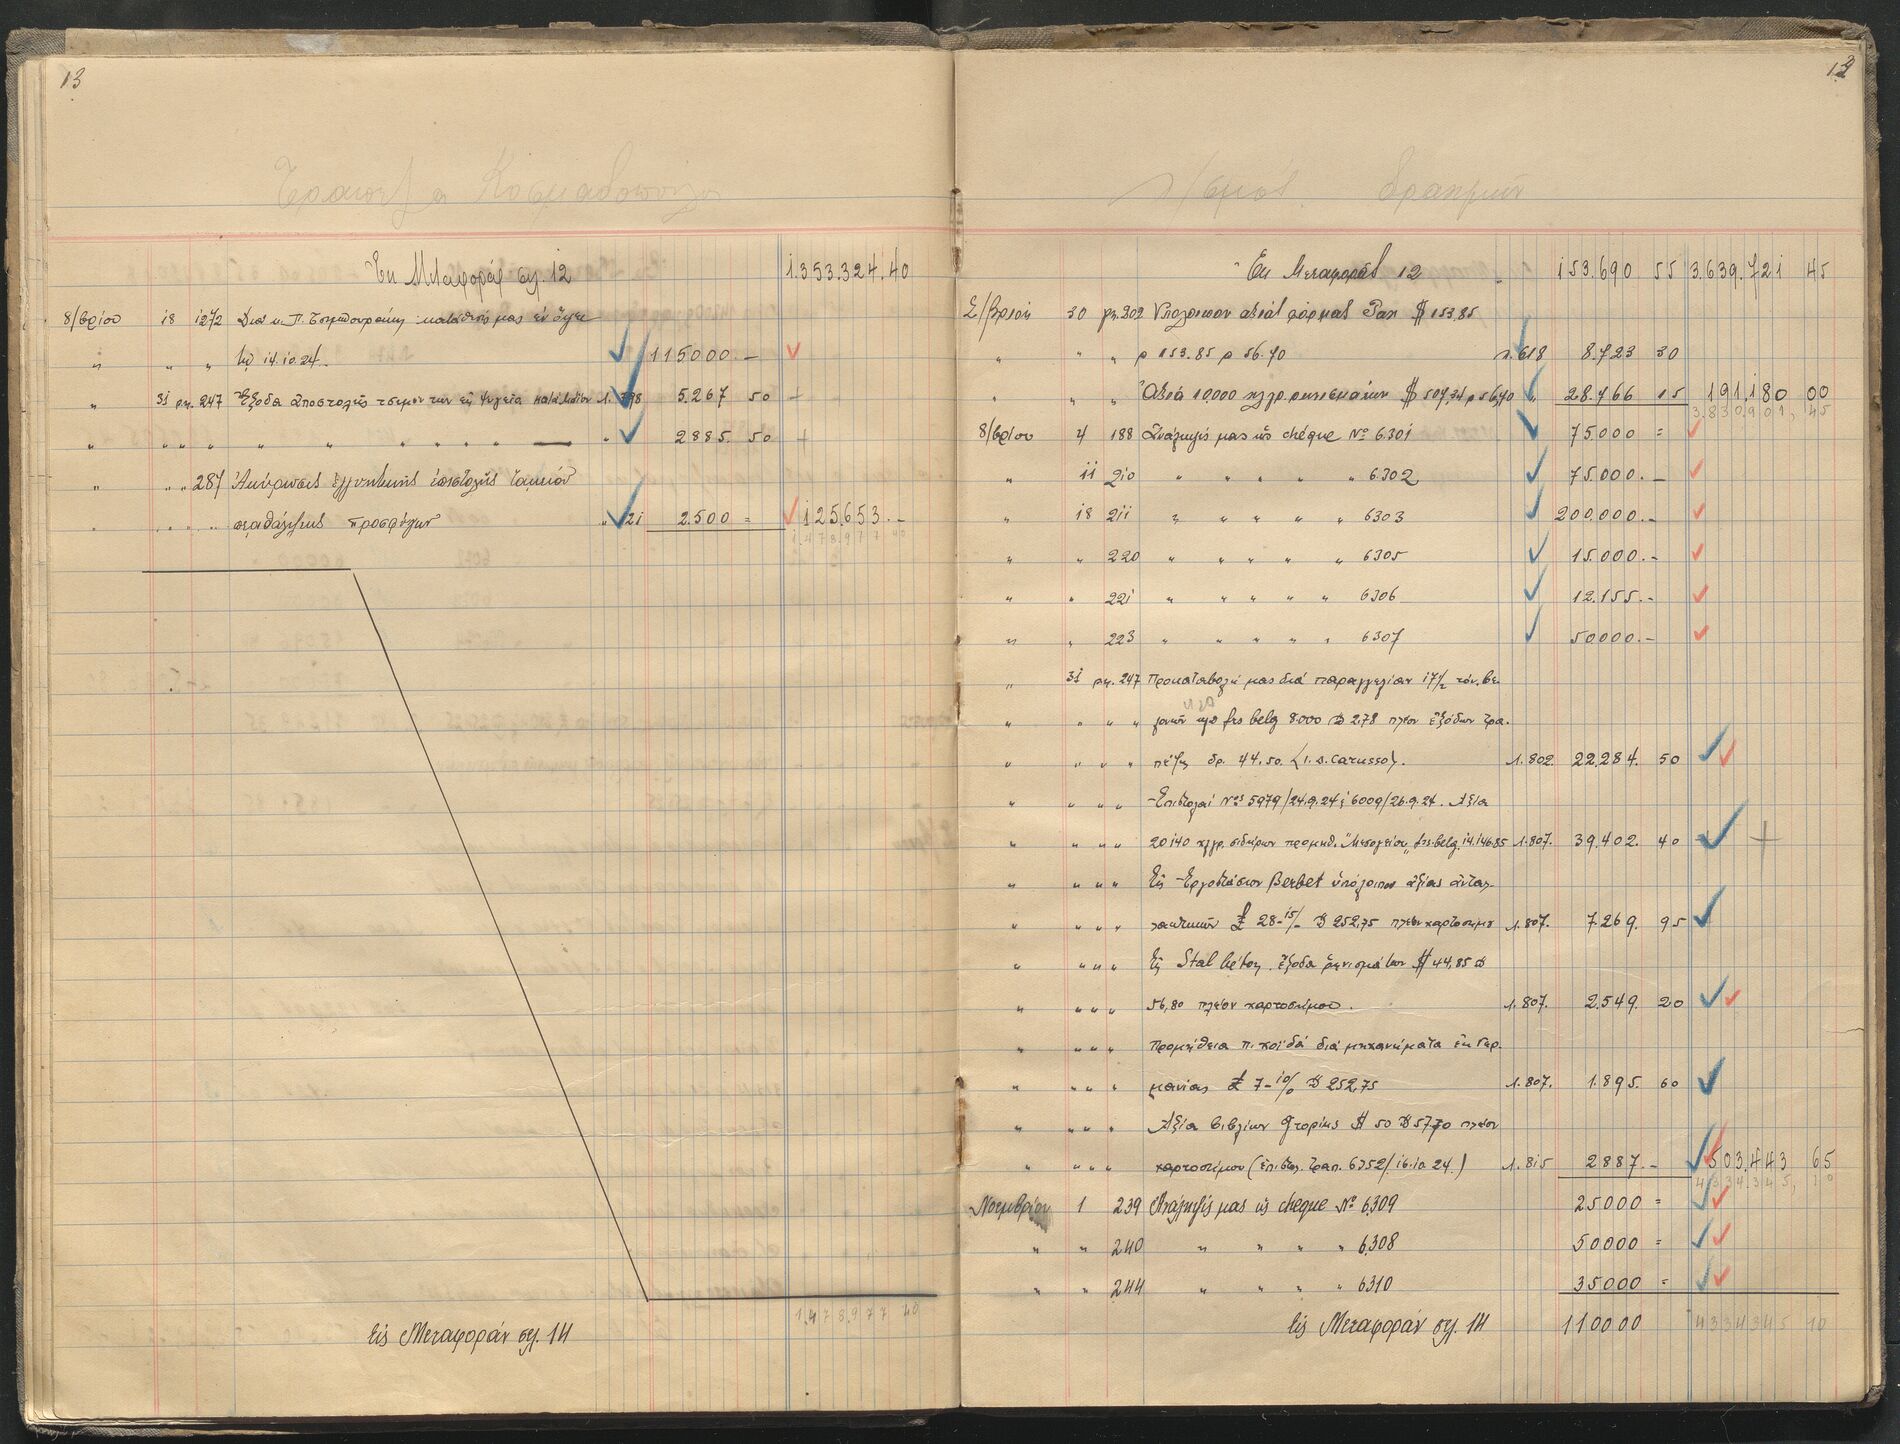 13
Τράπεζα Κοσμαδοπούλου
Ἐκ Μεταφορᾶς σελ. 12 1.353.324.40
8/βρίου 18 1272 Διά κ. Π. κατάθεσίς μας ἐν ὄψει
" " " τῇ 14.10.24. 115000.—
" 31 ρμ. 247 Ἔξοδα ἀποστολῆς 1.798 5.267 50
" " " " " " " " " " " 2885. 50
" " " 287 Ἀκύρωσις ἐγγυητικῆς ἐπιστολῆς Ταμείου
" " " " περιθάλψεως προσφύγων " 821 2.500 = 125.653.—
1.478.977 40
1.478.977 40
Εἰς Μεταφοράν σελ. 14
13
λ/σμός δραχμῶν
Ἐκ Μεταφορᾶς 12 153.690 55 3.639.721 45
Σ/βρίου 30 ρμ. 202 Ὑπόλοιπον ἀξίας φόρμας Pax $ 153.85
" " " $ 153.85 ρ 56.70 1.618 8.723 30
" " " Ἀξία 10.000 χλγρ. $ 507,34 ρ 56,70 " 28.766 15 191,180 00
3,830,901, 45
8/βρίου 4 188 Ἀνάληψίς μας ὡς chéque Nº 6301 75.000 =
" 11 210 " " " " " 6302 75.000.—
" 18 211 " " " " " 6303 200.000.—
" " 220 " " " " " 6305 15.000.—
" " 221 " " " " " 6306 12.155.—
" " 223 " " " " " 6307 50000.—
" 31 ρμ. 247 Προκαταβολή μας διά παραγγελίαν 17½ τόν. βε-
" " " " λονῶν frs belg 8.000 2,78 πλέον ἐξόδων Τρα-
" " " " πέζης δρ. 44,50. (1. D. Carusso). 1.802 22.284. 50
" " " " Ἐπιστολαί Nos 5979/24.9.24 & 6009/26.9.24. Ἀξία
" " " " 20140 χλγρ. σιδήρων προμηθ. "Μεσογείου" frs. belg. 14.146.85 1.807. 39.402. 40
" " " " Εἰς Ἐργοστάσιον Berbet ὑπόλοιπον ἀξίας ἀνταλ-
" " " " λακτικῶν £ 28-15/- 252,75 πλέον χαρτοσήμου 1.807. 7.269. 95
" " " " Εἰς Stal ἔξοδα $ 44,85
" " " " 56,80 πλέον χαρτοσήμου. 1.807. 2.549. 20
" " " " Προμήθεια Π. Κοϊδᾶ διά μηχανήματα ἐκ Γερ-
" " " " μανίας £ 7-10/- 252,75 1.807. 1.895. 60
" " " " Ἀξία βιβλίων $ 50 57,70 πλέον
" " " " χαρτοσήμου (ἐπιστ. Τραπ. 6352/16.10.24.) 1.815 2887.— 503,443 65
4,334,345, 10
Νοεμβρίου 1 239 Ἀνάληψίς μας ὡς cheque Nº 6309 25000 =
" " 240 " " " " 6308 50000 =
" " 244 " " " " 6310 35000 =
Εἰς Μεταφοράν σελ. 14 110000 4334345 10